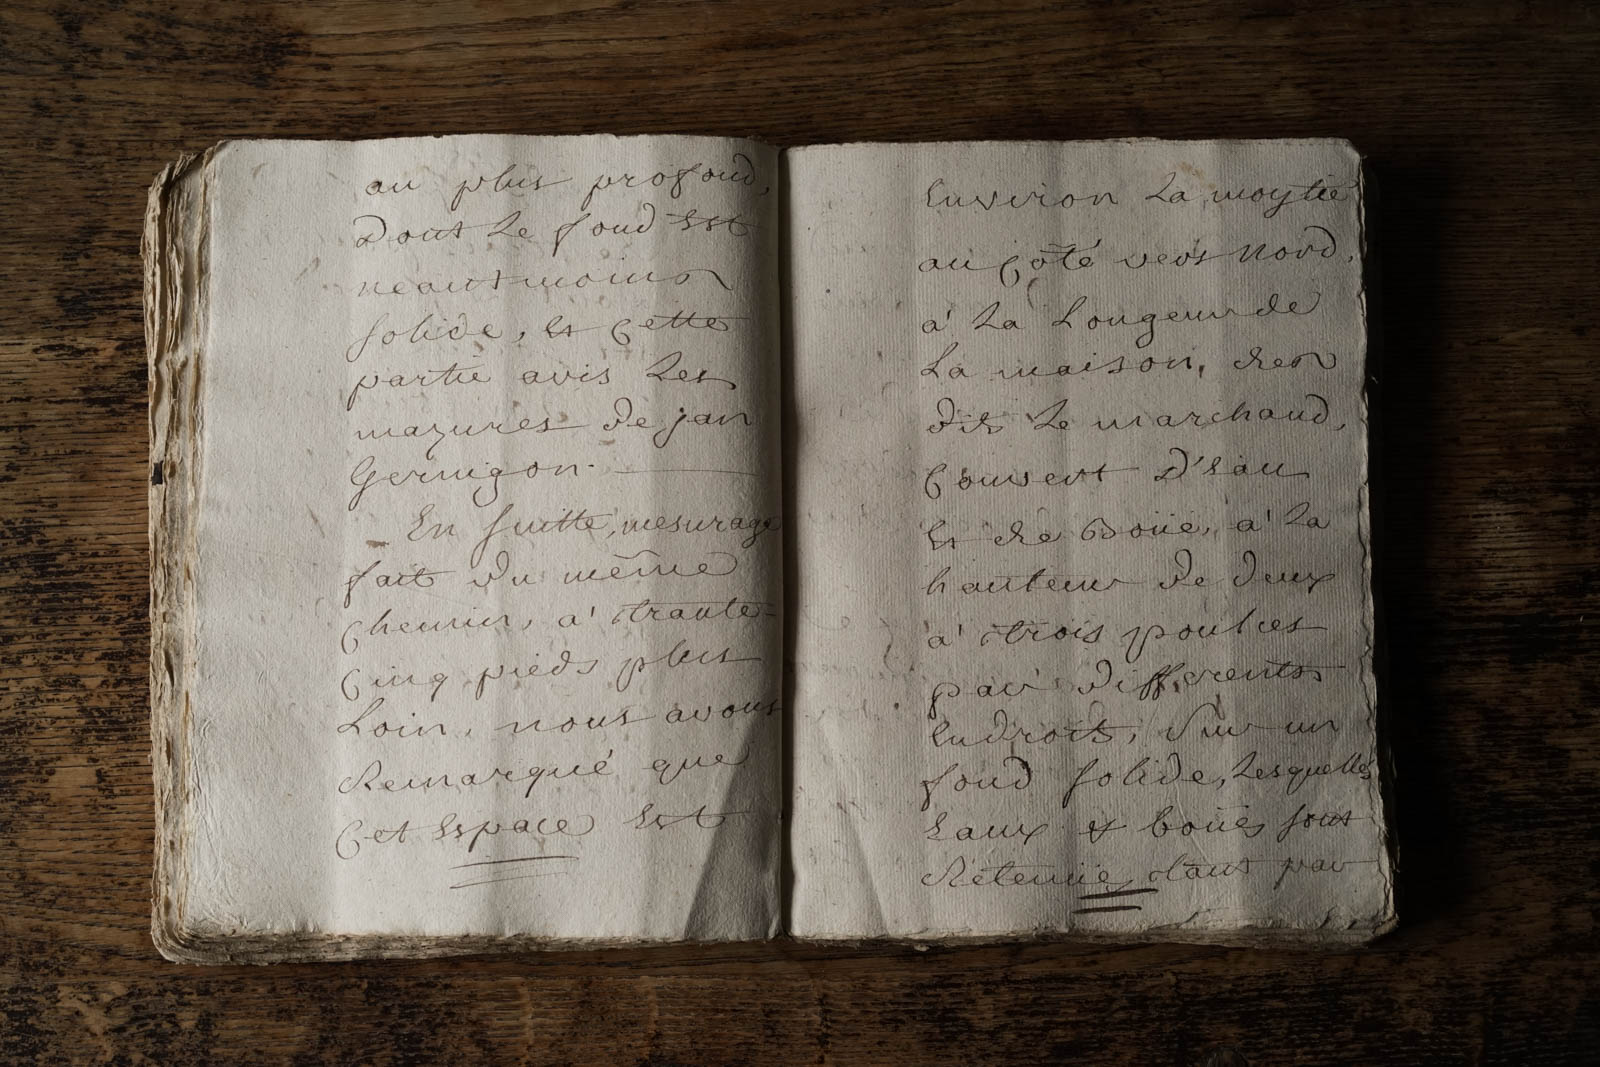 au plus profond,
dont Le fond Est
neantmoins
solide, Et Cette
partie avis Les
mazures de jan
Gernigon.
En suitte, mesurage
fait du même
Chemin, a' trante-
Cinq pieds plus
Loin, nous avons
Remarqué que
Cet Espace Est
Environ La moytie
au Côté vers Nord,
a' La Longeur de
La maison, des
dits Le marchand,
Couvert d'Eau
Et de Boüe, a' La
hauteur de deux
a' trois poulces
par differents
Endroits, Sur un
fond solide, Lesquelles
Eaux & boües sont
Retenüe, tant par